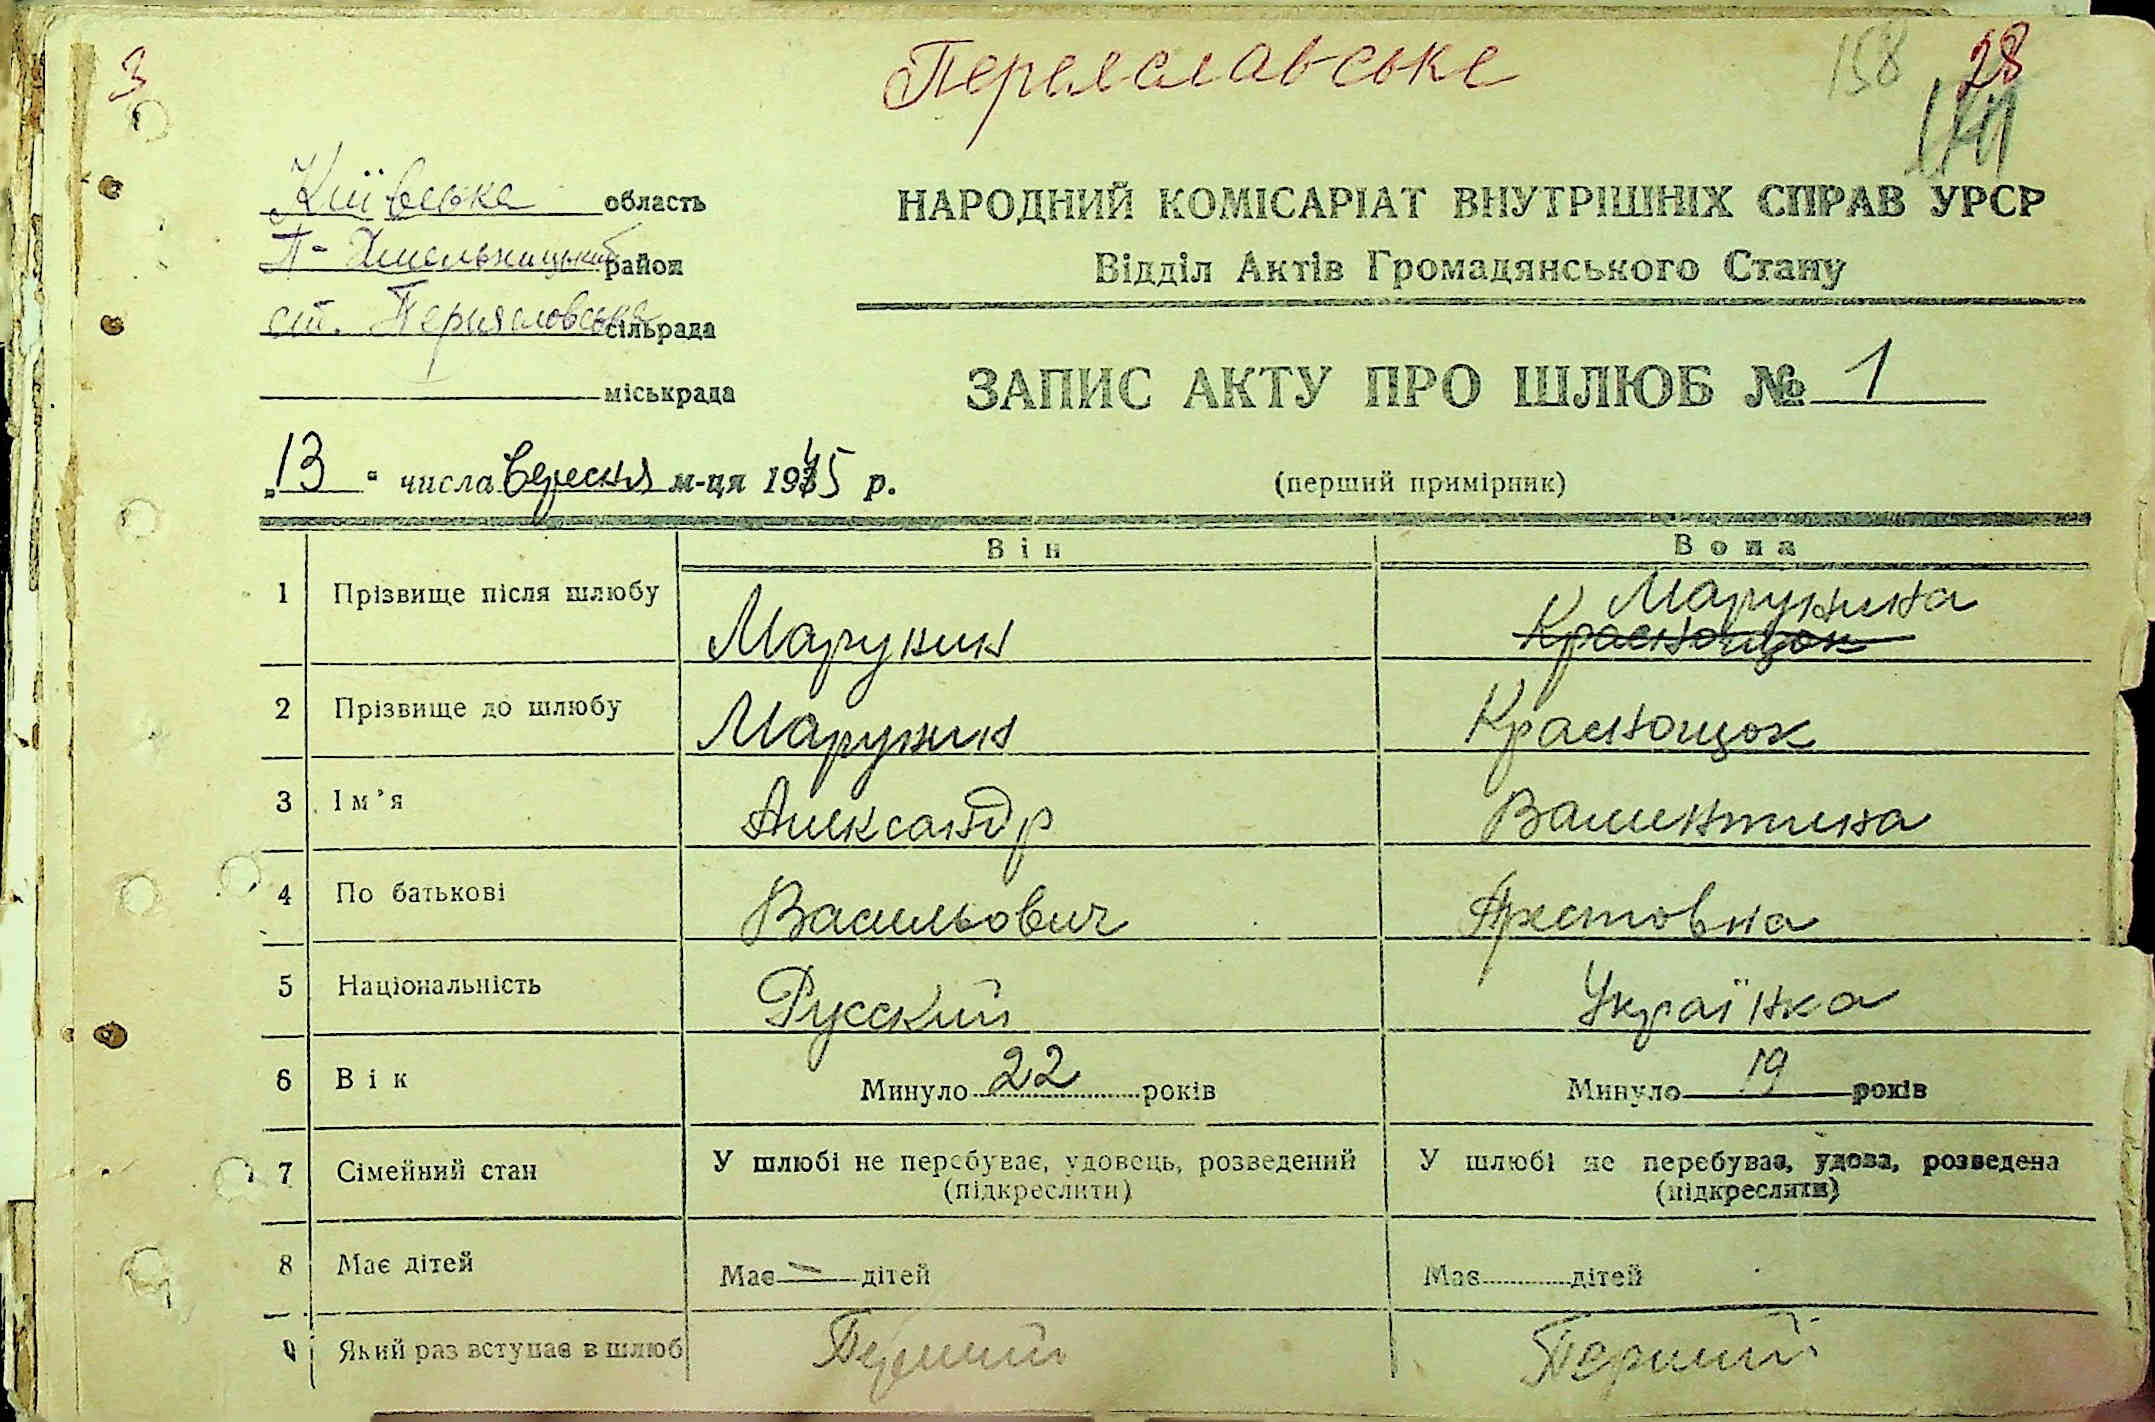 3
Переяславське
158
28
Київська область
П-Хмельницький район
ст. Переясловська сільрада
міськрада
НАРОДНИЙ КОМІСАРІАТ ВНУТРІШНІХ СПРАВ УРСР
Відділ Актів Громадянського Стану
ЗАПИС АКТУ ПРО ШЛЮБ № 1
„13“ числа вересня м-ця 1945 р.
(перший примірник)
Він
Вона
1 Прізвище після шлюбу Марунин Марунина
Краснощок
2 Прізвище до шлюбу Марунин Краснощок
3 Ім'я Александр Валентина
4 По батькові Васильович Арестовна
5 Національність Русский Українка
6 Вік Минуло 22 років Минуло 19 років
7 Сімейний стан У шлюбі не перебуває, удовець, розведений У шлюбі не перебуває, удова, розведена
(підкреслити) (підкреслити)
8 Має дітей Має — дітей Має дітей
9 Який раз вступає в шлюб Перший Перший